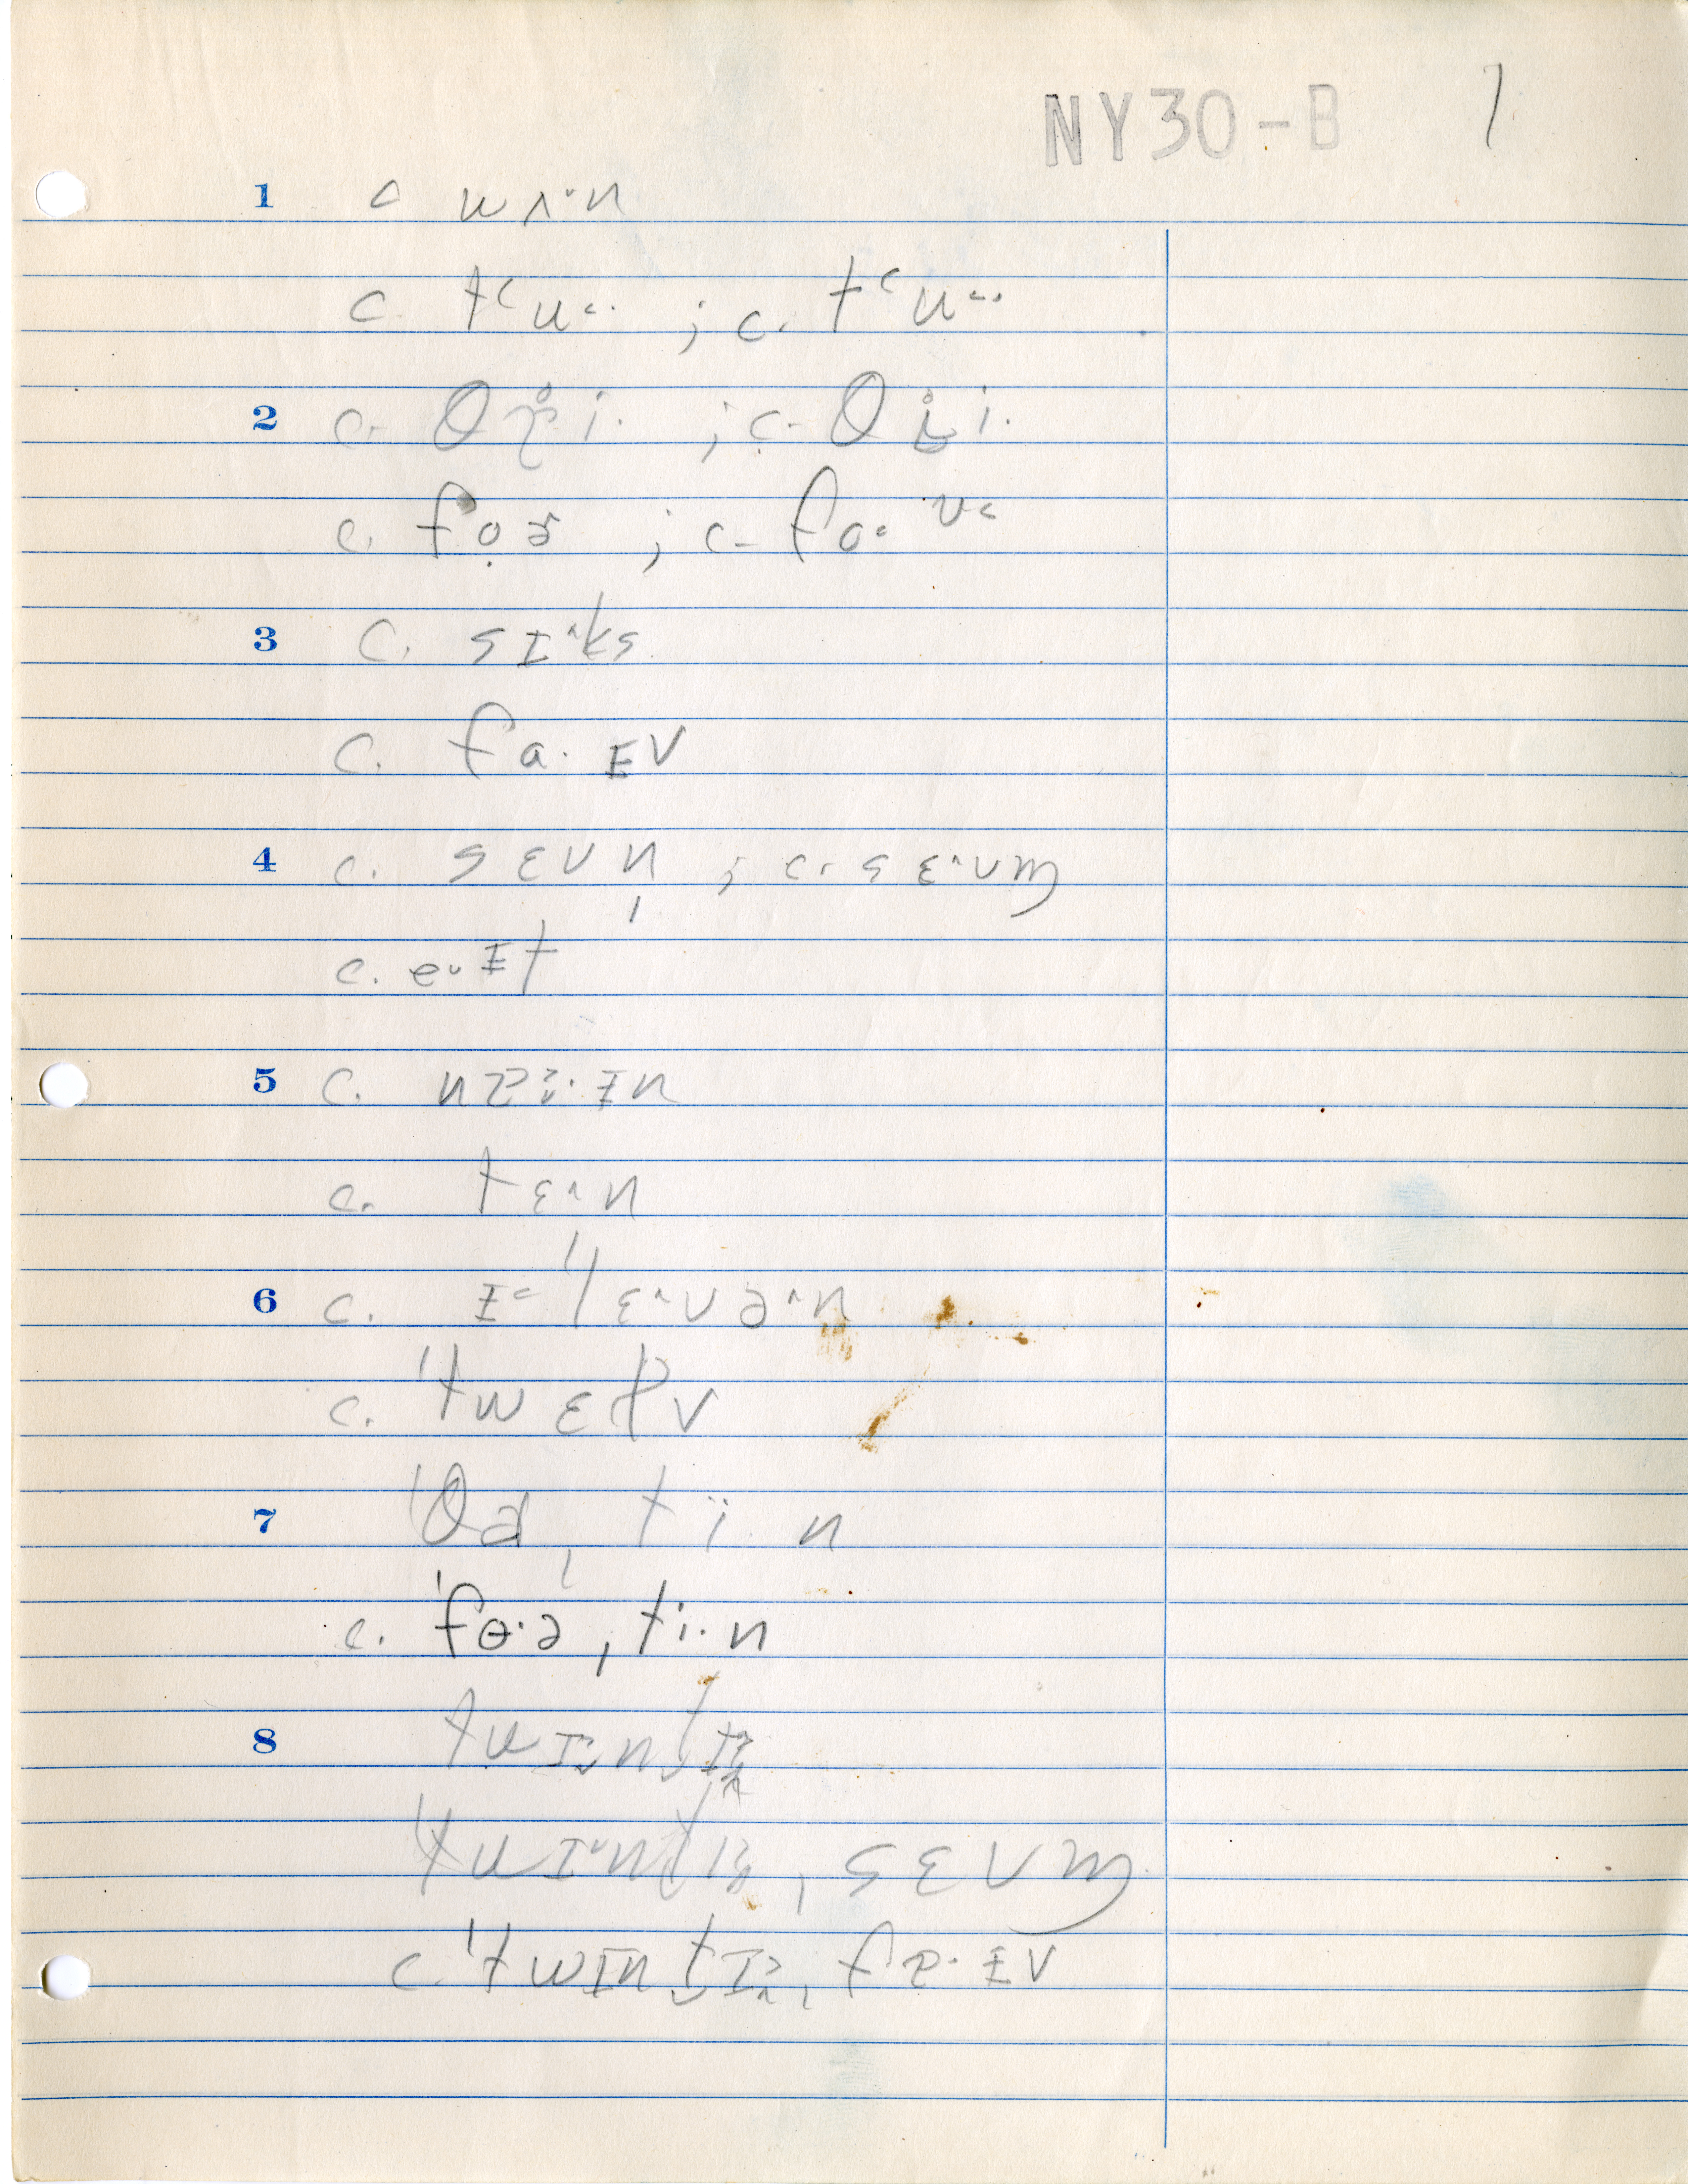 NY30-B 1
1 c wʌ·n
c. tʻu˂· ; c. tʻu˂·
2 c. θ i· ; c. θ i·
c. fo̜ɚ ; c. fo˂
3 c. sɪ^ks
c. fa·ɪv
4 c. sɛvn̩ ; c. sɛ^vɱ
c. e˅ɪt
5 c. na·ɪn
c. tɛ^n
6 c. ɪ˂ˈlɛ^və^n
c. ˈtwɛɫv
7 ˈθɚˌti·n
c. ˈfɵ·əˌti·n
8 twɪ˅n̬tɪ
ˈtwɪ^n̬tɪˌsɛvɱ
c. ˈtwɪn̬tɪˌfa·ɪv